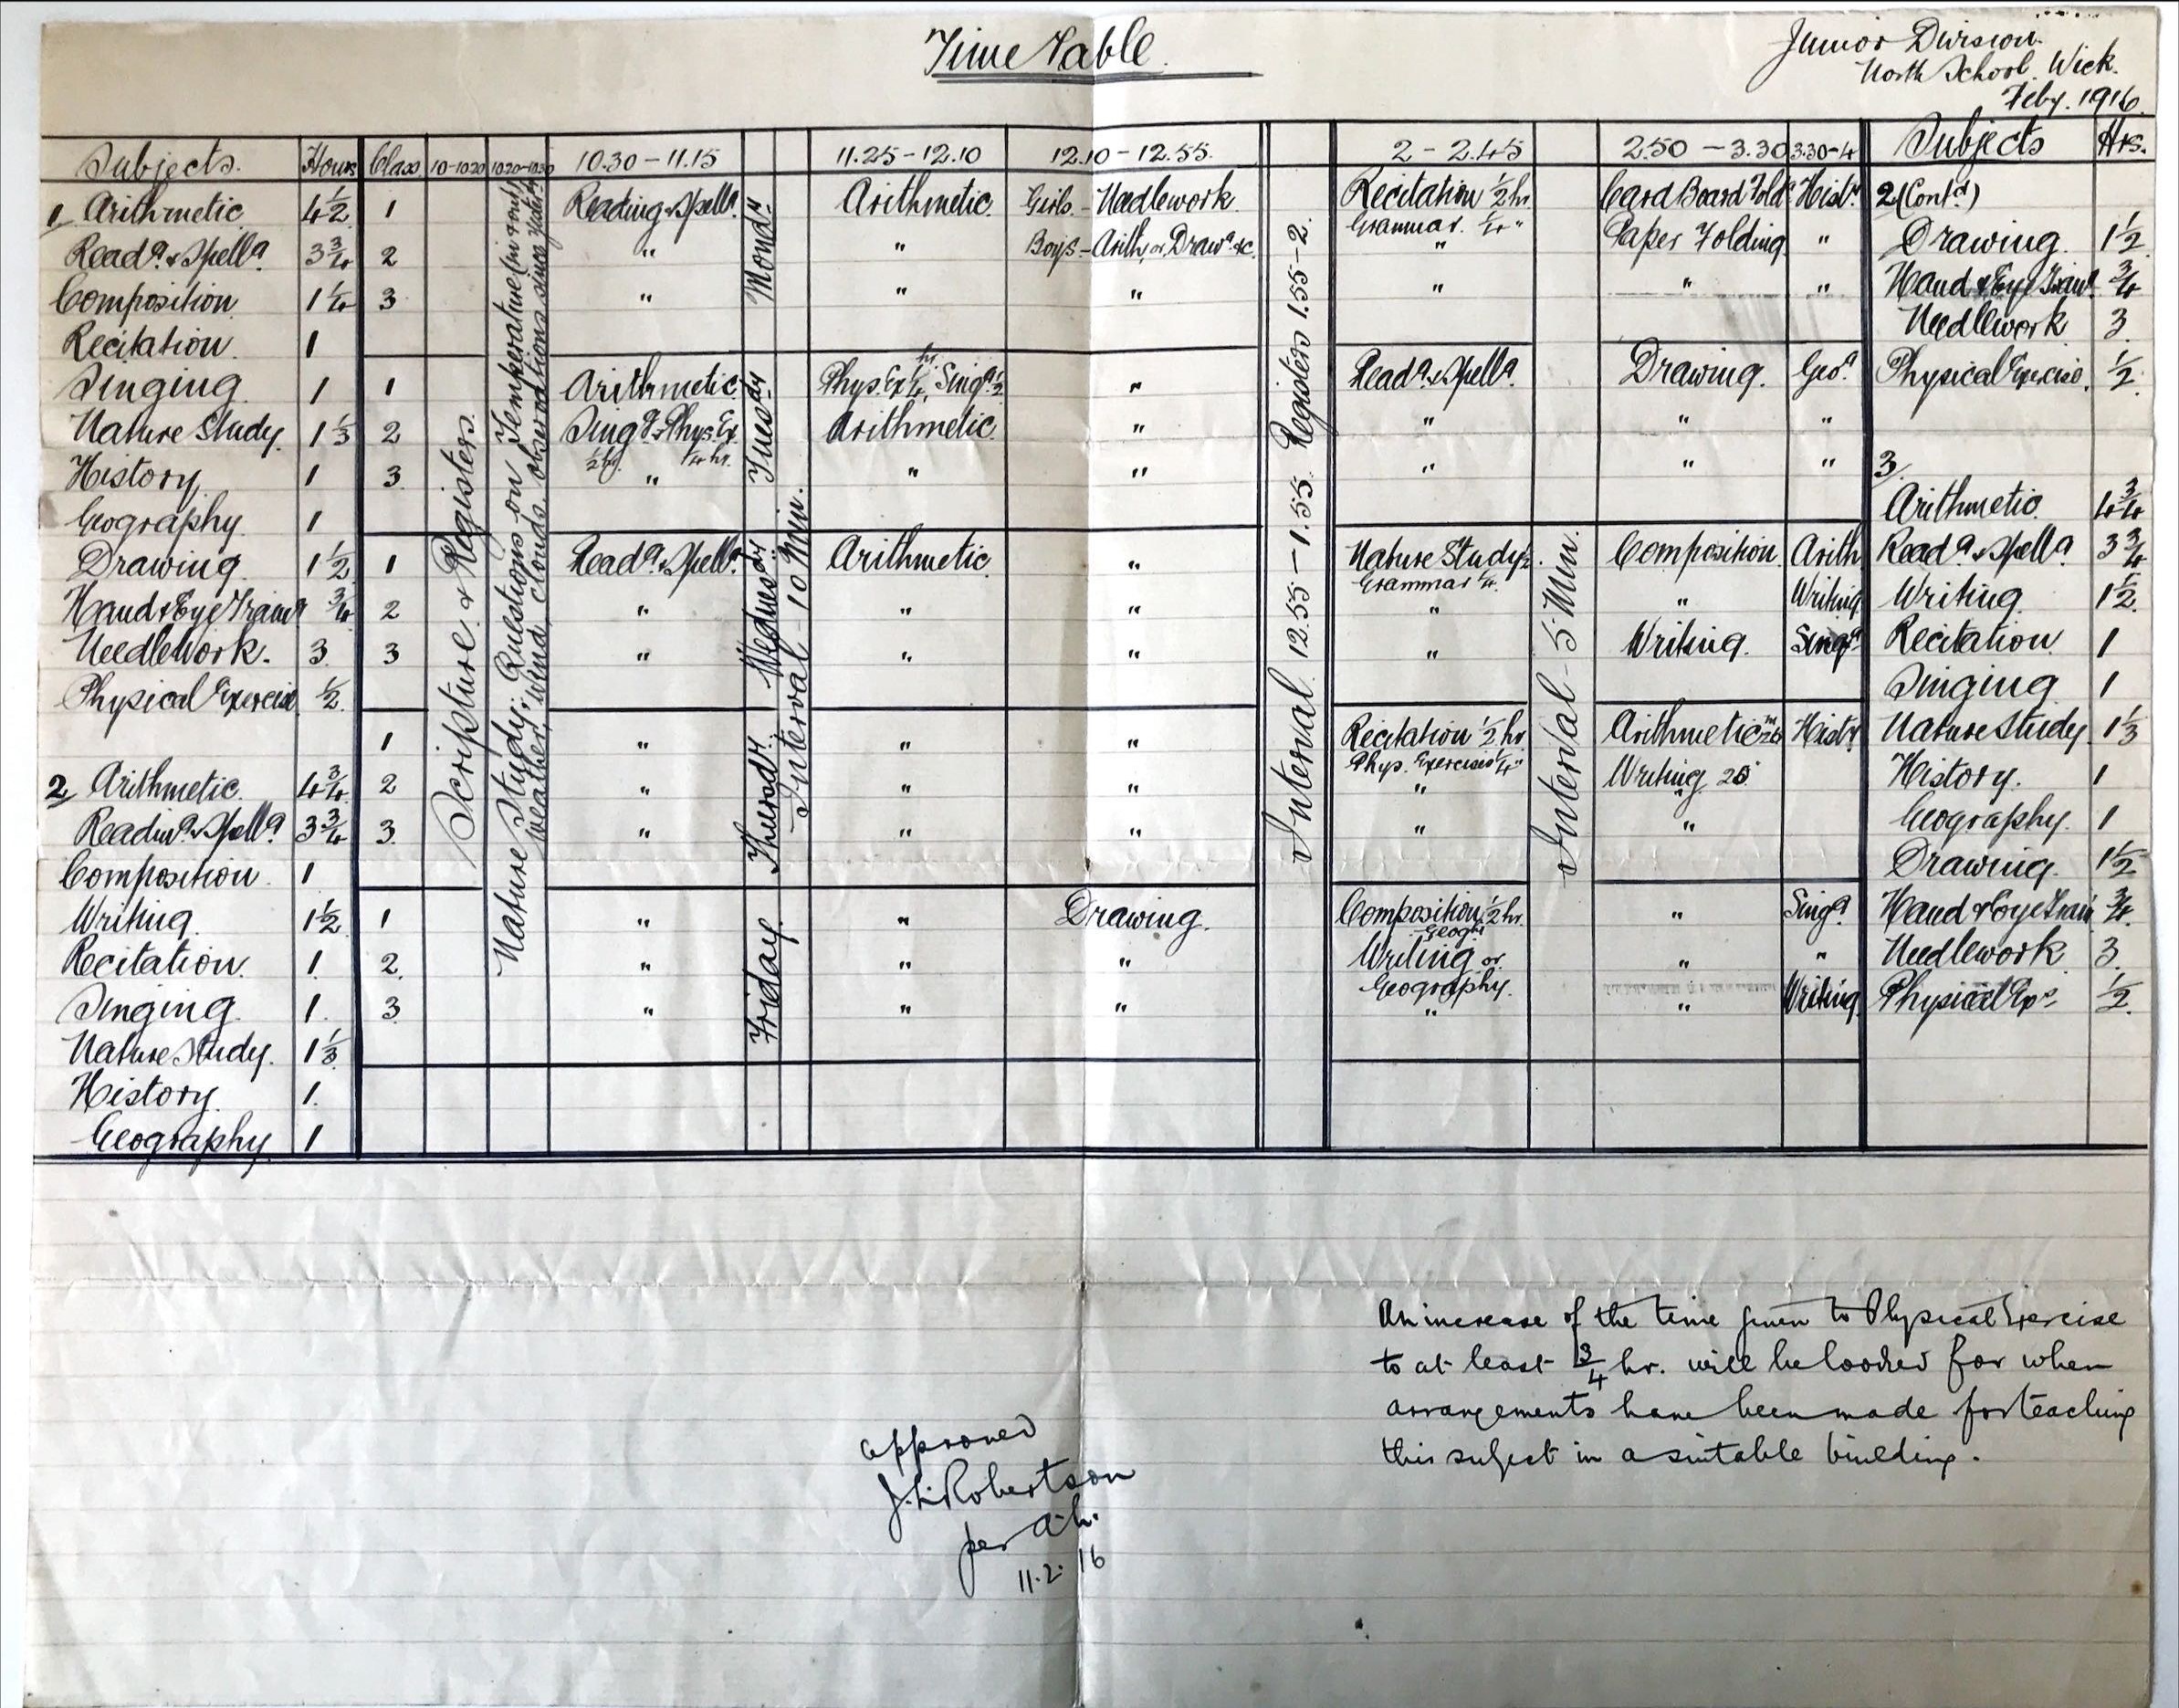 Time Table.
Junior Division.
North School. Wick.
Feby. 1916.
Subjects. Hours Class 10-10.20 10.20-10.30 10.30 - 11.15 11.25 - 12.10 12.10 - 12.55. 2 - 2.45 2.50 - 3.30 3.30-4 Subjects Hrs.
1 Arithmetic 4 1/2 1 Reading & Spellg. Arithmetic. Girls - Needlework Recitation 1/2 hr. Card Board Fold Histy 2 (Contd)
Grammar. 1/4 "
Readg. & Spellg. 3 3/4 2 " " Boys - Arith. or Drawg. &c. " Paper Folding " Drawing. 1 1/2
Composition 1 1/4 3 " " " " " " Hand & Eye Traing 3/4
Recitation. 1 Needlework 3
Singing. 1 1 Arithmetic Phys. Ex 1/4 hr, Singg. 1/2 " Readg. & Spellg. Drawing. Geog. Physical Exercise. 1/2
Nature Study. 1 1/3 2 Singg. & Phys. Ex. Arithmetic " " " "
1/2 hr. 1/4 hr.
History. 1 3 " " " " " " 3
Geography. 1 Arithmetic. 4 3/4
Drawing. 1 1/2 1 Readg. & Spellg. Arithmetic " Nature Study 1/2. Composition Arith. Readg. & Spellg. 3 3/4
Grammar 1/4.
Hand & Eye Traing 3/4 2 " " " " " Writing Writing. 1 1/2
Needlework. 3 3 " " " " Writing. Singg. Recitation 1
Physical Exercise 1/2 Singing 1
1 " " " Recitation 1/2 hr Arithmetic Histy Nature Study. 1 1/3
Phys. Exercise 1/4 "
2 Arithmetic. 4 3/4 2 " " " " Writing History. 1
Readng. & Spellg. 3 3/4 3 " " " " " Geography. 1
Composition. 1 Drawing. 1 1/2
Writing. 1 1/2 1 " " Drawing. Composition, 1/2 hr. " Singg. Hand & Eye Train 3/4
Geogy
Recitation. 1 2 " " " Writing or " " Needlework 3
Geography.
Singing. 1 3 " " " " " Writing Physical Exs 1/2
Nature Study. 1 1/3
History. 1
Geography 1
Scripture & Registers.
Nature Study; Questions on Temperature (in room)
weather, wind, clouds, observations since
Mondy
Tuesdy
Wednesdy
Thursdy.
Friday.
Interval - 10 Min.
Interval 12.55 - 1.55. Registers 1.55 - 2.
Interval - 5 Min.
An increase of the time given to Physical Exercise
to at least 3/4 hr. will be looked for when
arrangements have been made for teaching
this subject in a suitable building.
approved
J. L. Robertson
per
11.2.16